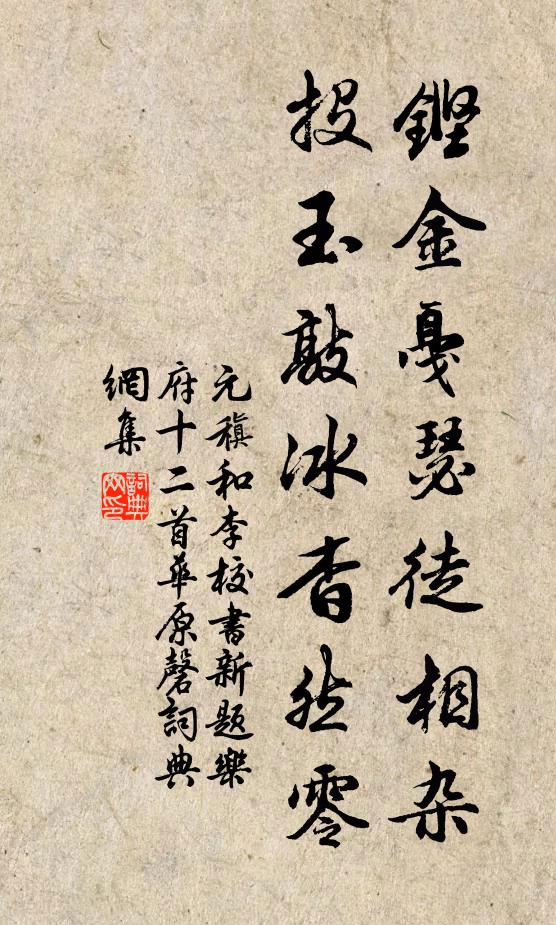 鏗金戛瑟徒相杂
投玉敲冰杳然零
元稹和李校書新題樂
府十二首華原磬詞典
網集
詞典
网印